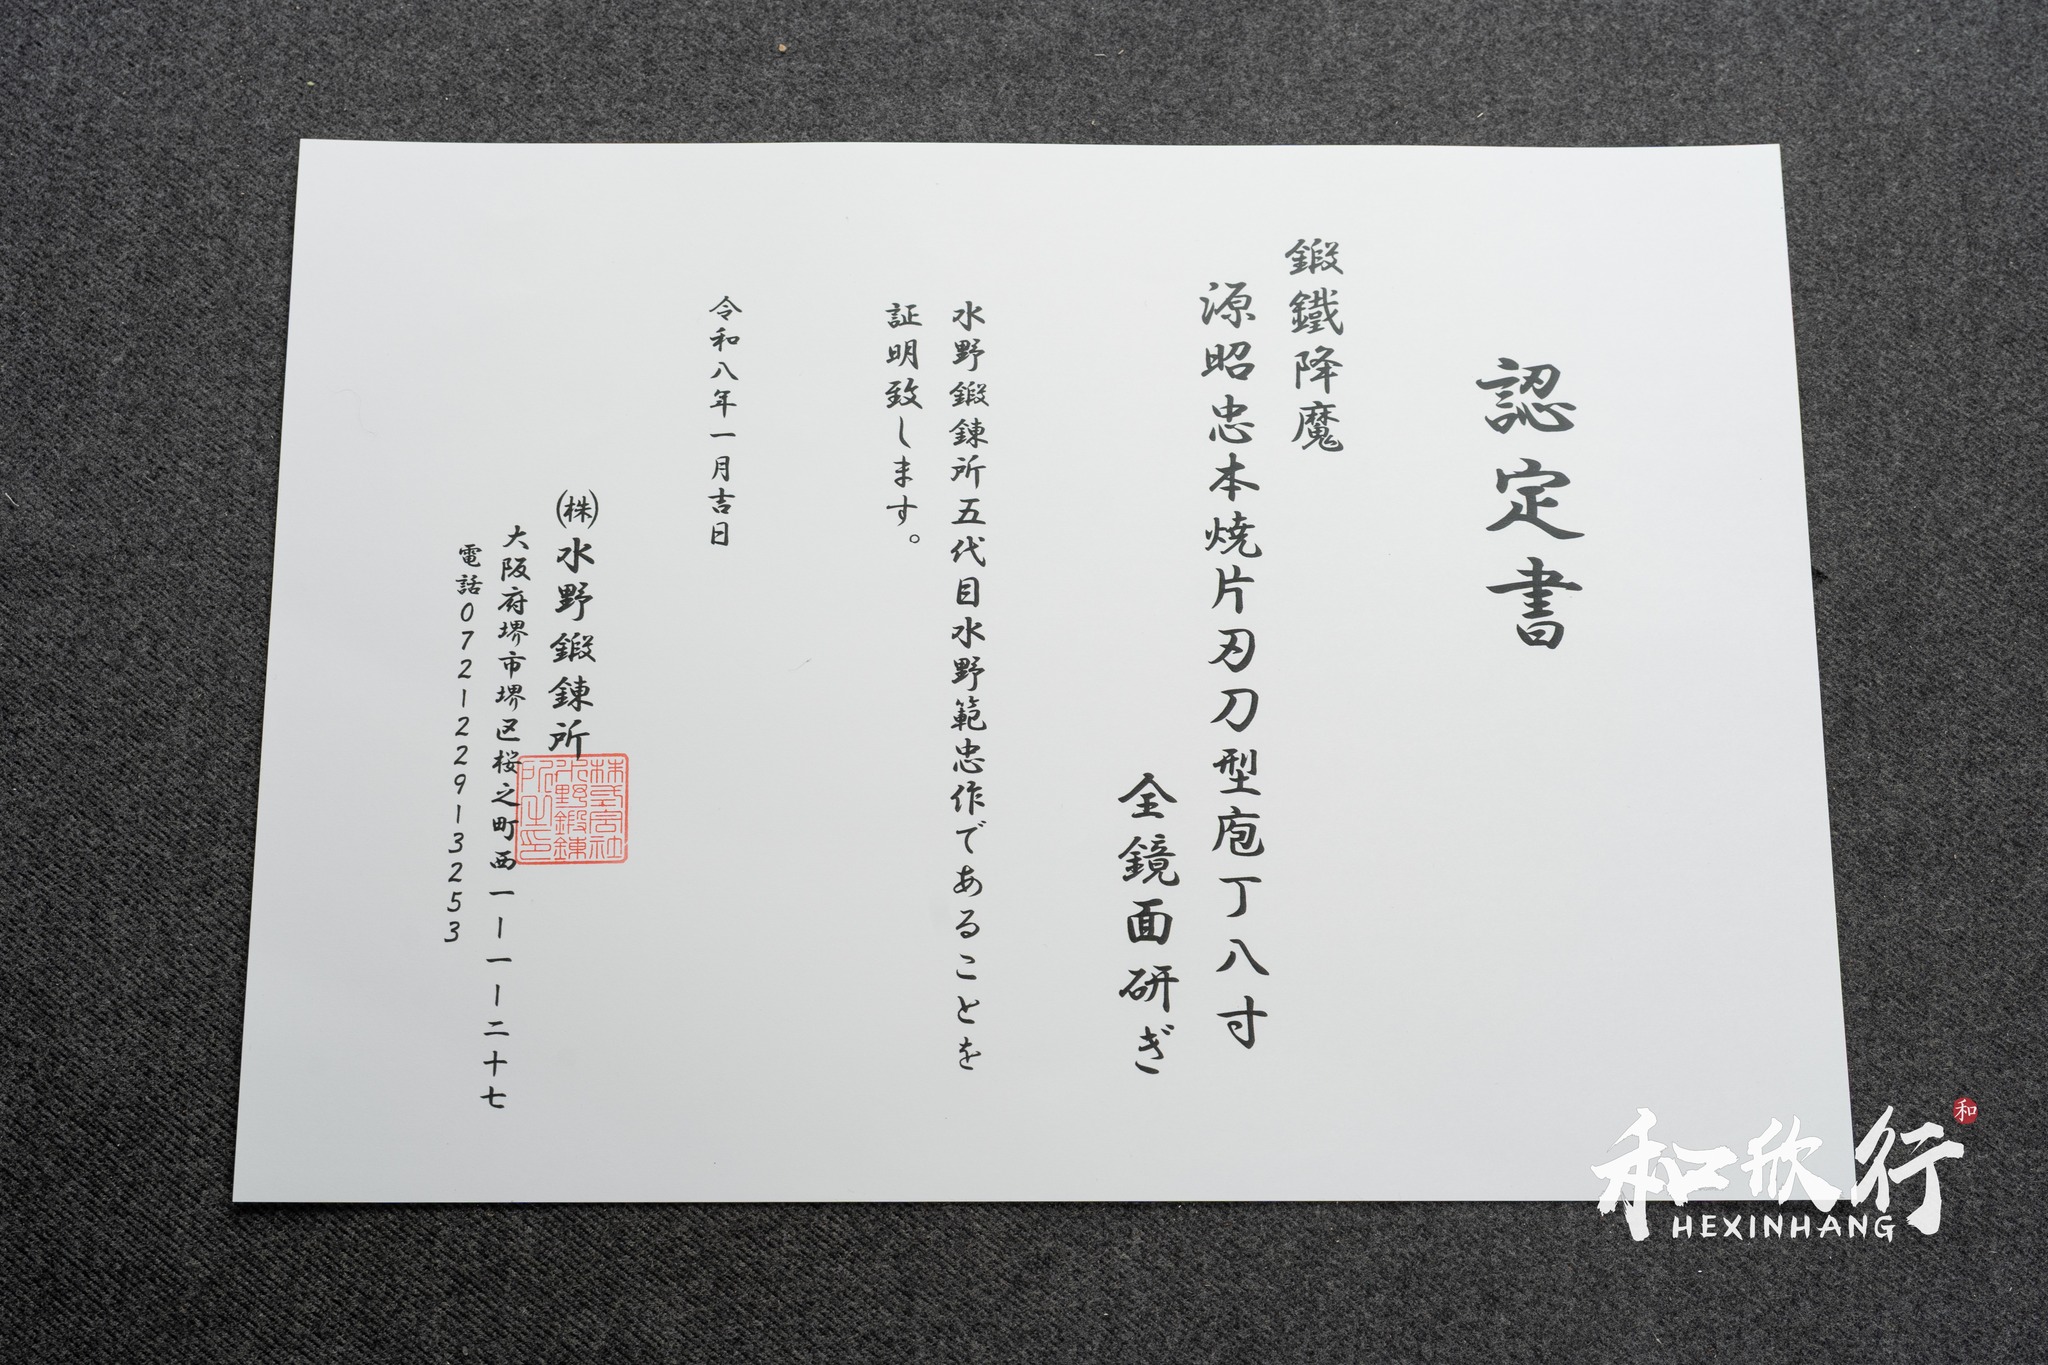 認定書
鍛鐵降魔
源昭忠本焼片刃刀型庖丁八寸
全鏡面研ぎ
水野鍛錬所五代目水野範忠作であることを
証明致します。
令和八年一月吉日
㈱水野鍛錬所
株式会社
水野鍛錬
所之印
大阪府堺市堺区桜之町西一ー一ー二十七
電話072122913253
和欣行
和
HEXINHANG